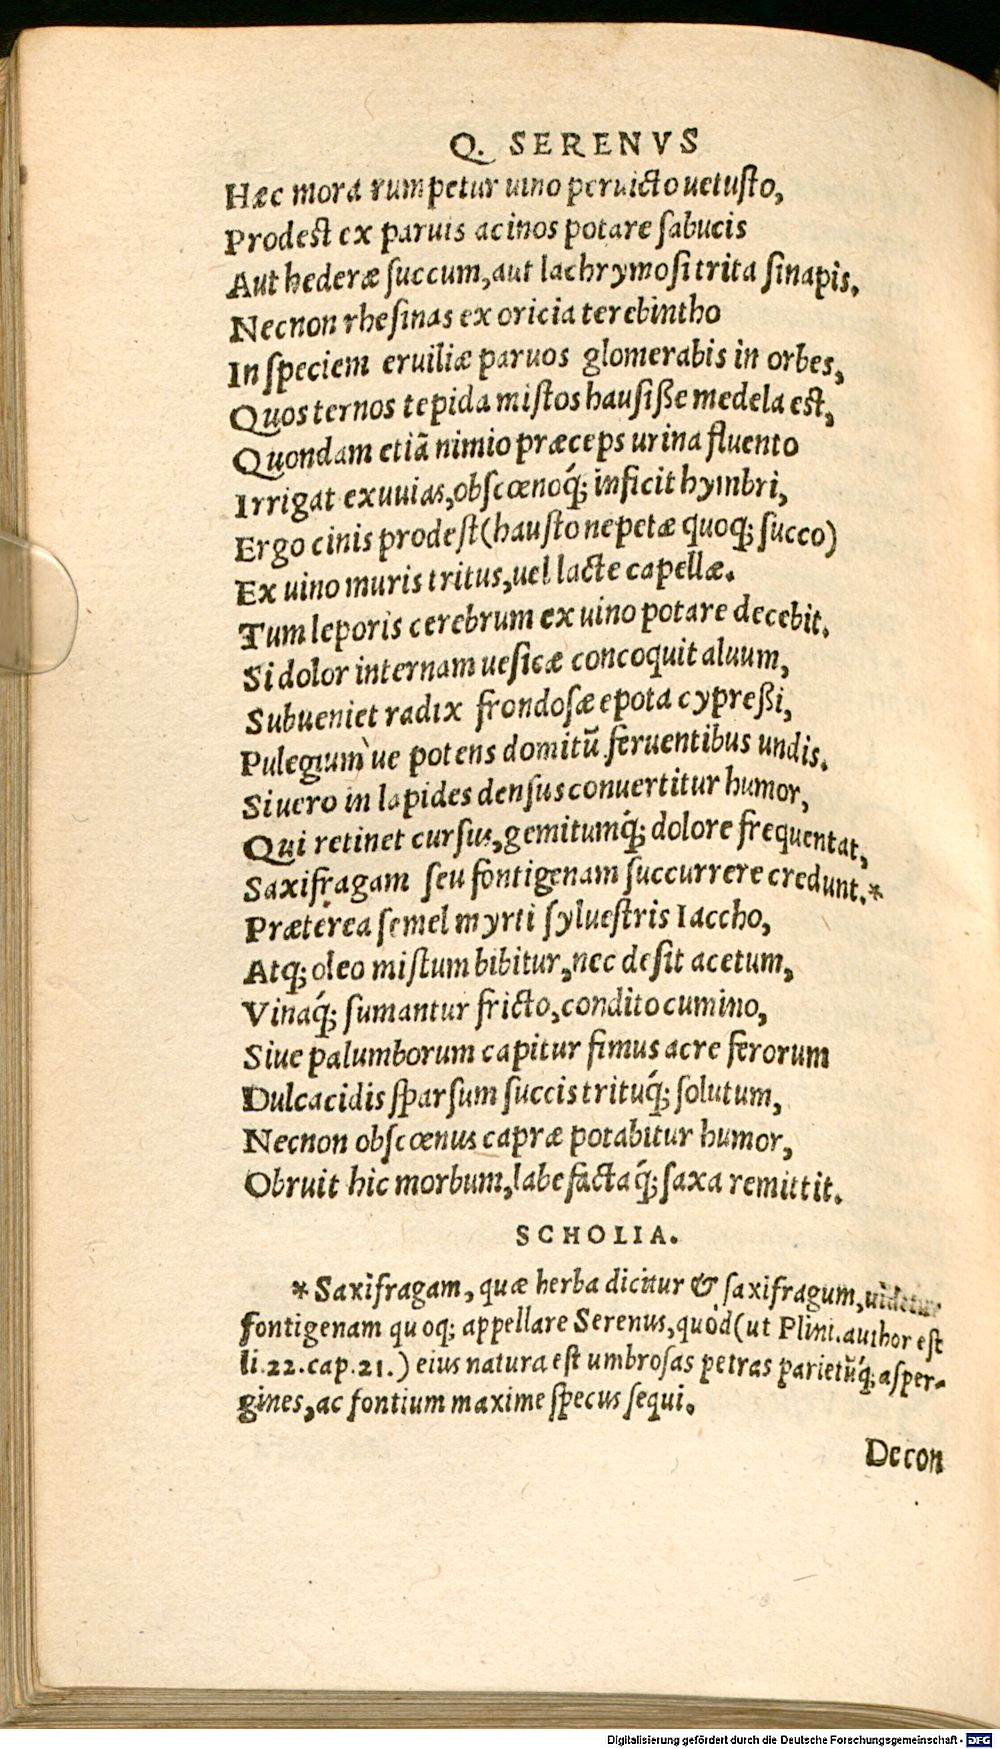 Q. SERENVS
Hæc mora rumpetur uino peruicto uetusto,
Prodest ex paruis acinos potare sabucis
Aut hederæ succum, aut lachrymosi trita sinapis.
Necnon rhesinas ex oricia terebintho
In speciem eruiliæ paruos glomerabis in orbes,
Quos ternos tepida mistos hausiße medela est,
Quondam etiā nimio præceps urina fluento
Irrigat exuuias, obscœnoq́; inficit hymbri,
Ergo cinis prodest (hausto nepetæ quoq; succo)
Ex uino muris tritus, uel lacte capellæ.
Tum leporis cerebrum ex uino potare decebit.
Si dolor internam uesicæ concoquit aluum,
Subueniet radix frondosæ epota cypreßi,
Pulegium'ue potens domitū feruentibus undis.
Si uero in lapides densus conuertitur humor,
Qui retinet cursus, gemitumq́; dolore frequentat,
Saxifragam seu fontigenam succurrere credunt.*
Præterea semel myrti syluestris Iaccho,
Atq; oleo mistum bibitur, nec desit acetum,
Vinaq́; sumantur fricto, condito cumino,
Siue palumborum capitur fimus acre ferorum
Dulcacidis sparsum succis trituq́; solutum,
Necnon obscœnus capræ potabitur humor,
Obruit hic morbum, labefactaq́; saxa remittit.
SCHOLIA.
* Saxifragam, quæ herba dicitur & saxifragum, uidetur
fontigenam quoq; appellare Serenus, quòd (ut Plini. author est
li. 22. cap. 21.) eius natura est umbrosas petras parietūq́; asper-
gines, ac fontium maxime specus sequi.
De con
Digitalisierung gefördert durch die Deutsche Forschungsgemeinschaft - DFG